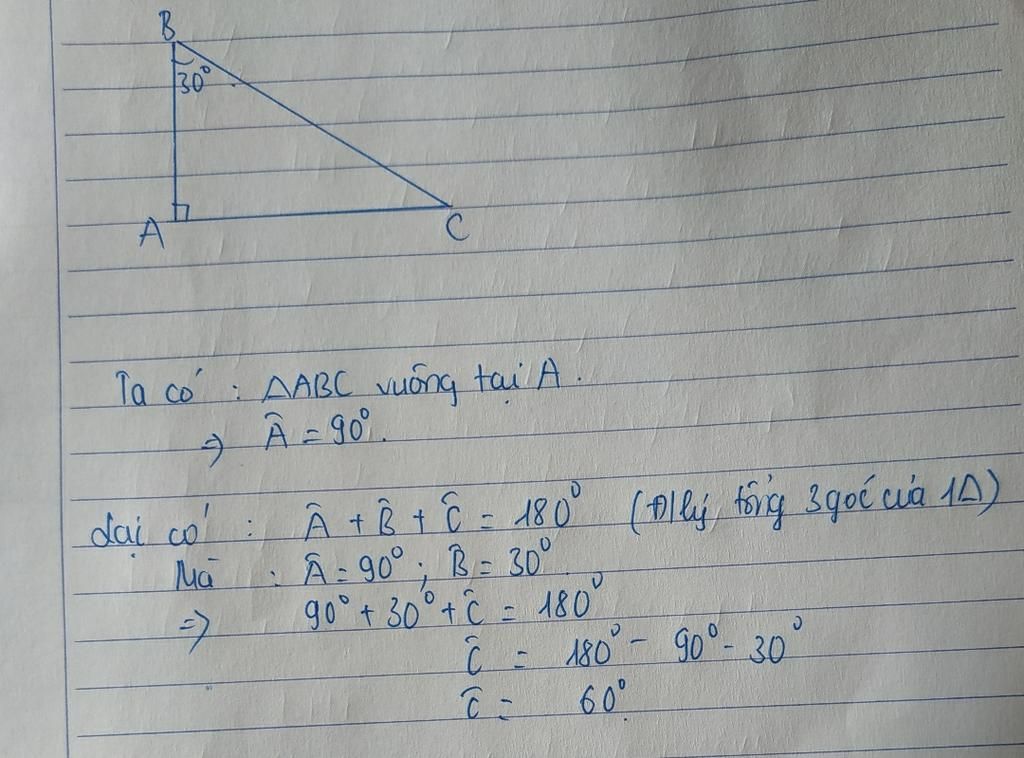 B
30°
A
C
Ta có : ΔABC vuông tại A.
=> Â = 90°.
Lại có : Â + B̂ + Ĉ = 180° (Đlý tổng 3 góc của 1Δ)
Mà : Â = 90° ; B̂ = 30°
=> 90° + 30° + Ĉ = 180°
Ĉ = 180° - 90° - 30°
Ĉ = 60°.